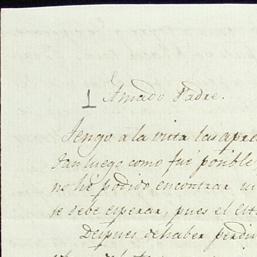 Amado Padre.
Tengo a la vista las apre
Tan luego como fue posible
no he podido encontrar u
se debe esperar, pues el
Despues de haber perdi